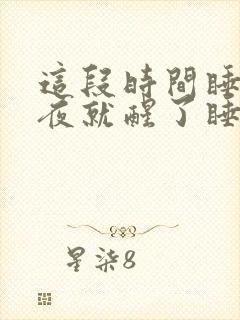 這段時間睡
夜就醒了睡
星柒8